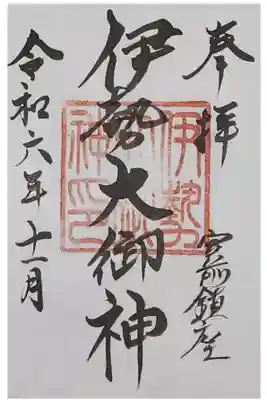 奉拝
宮前鎮座
伊勢大御神
令和六年十一月
伊勢
神印